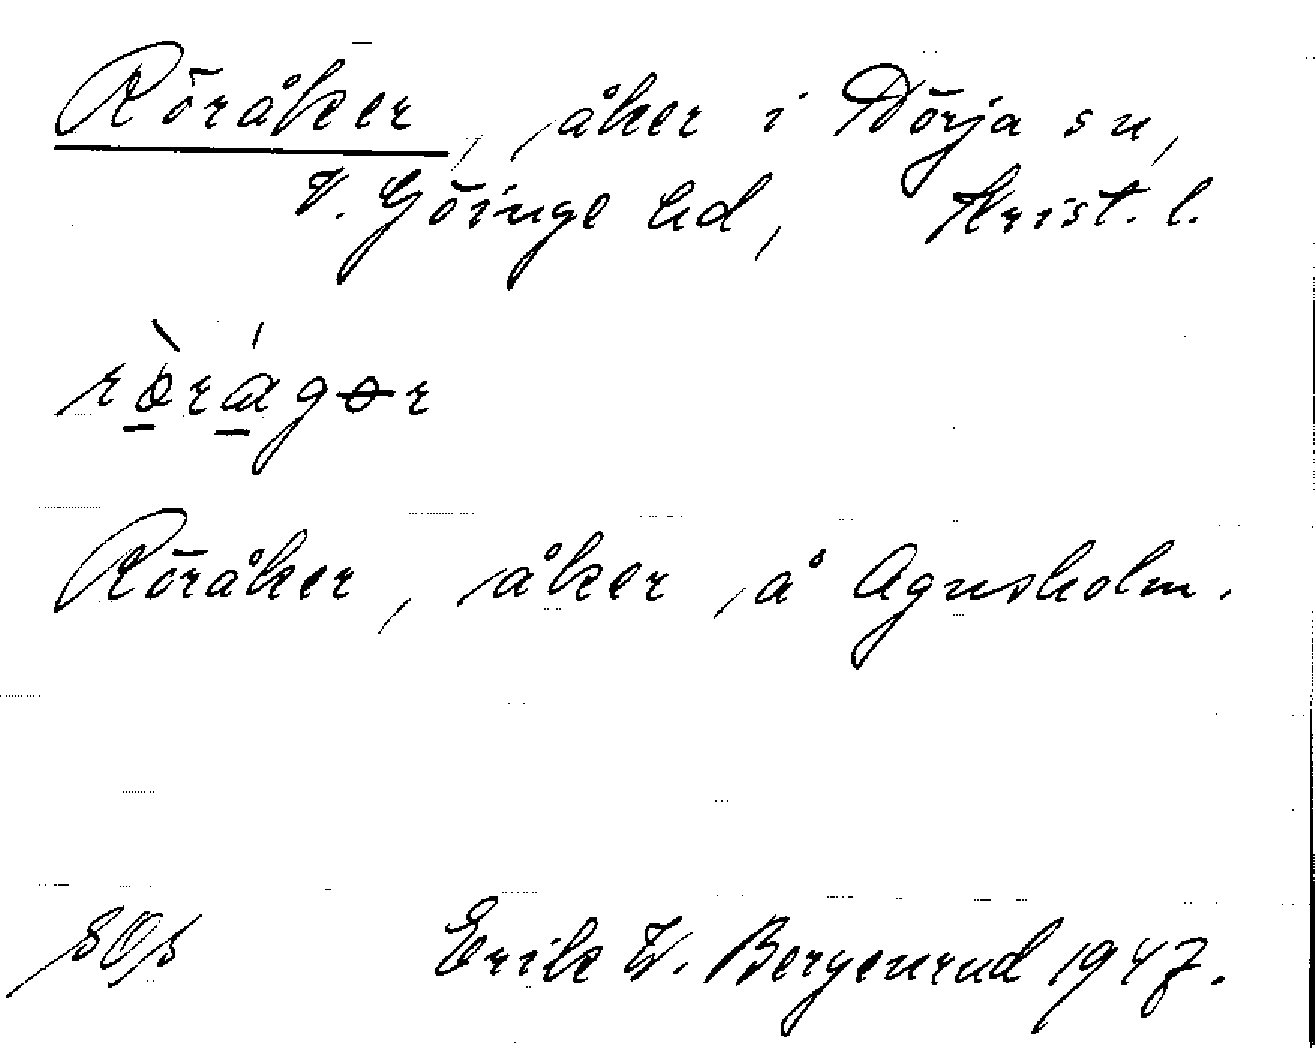 Röråker, åker i Nörja sn,
V. Göinge hd, Krist. l.
rö̀rágɵr
Röråker, åker å Agnsholm.
Erik W. Bergenrud 1947.